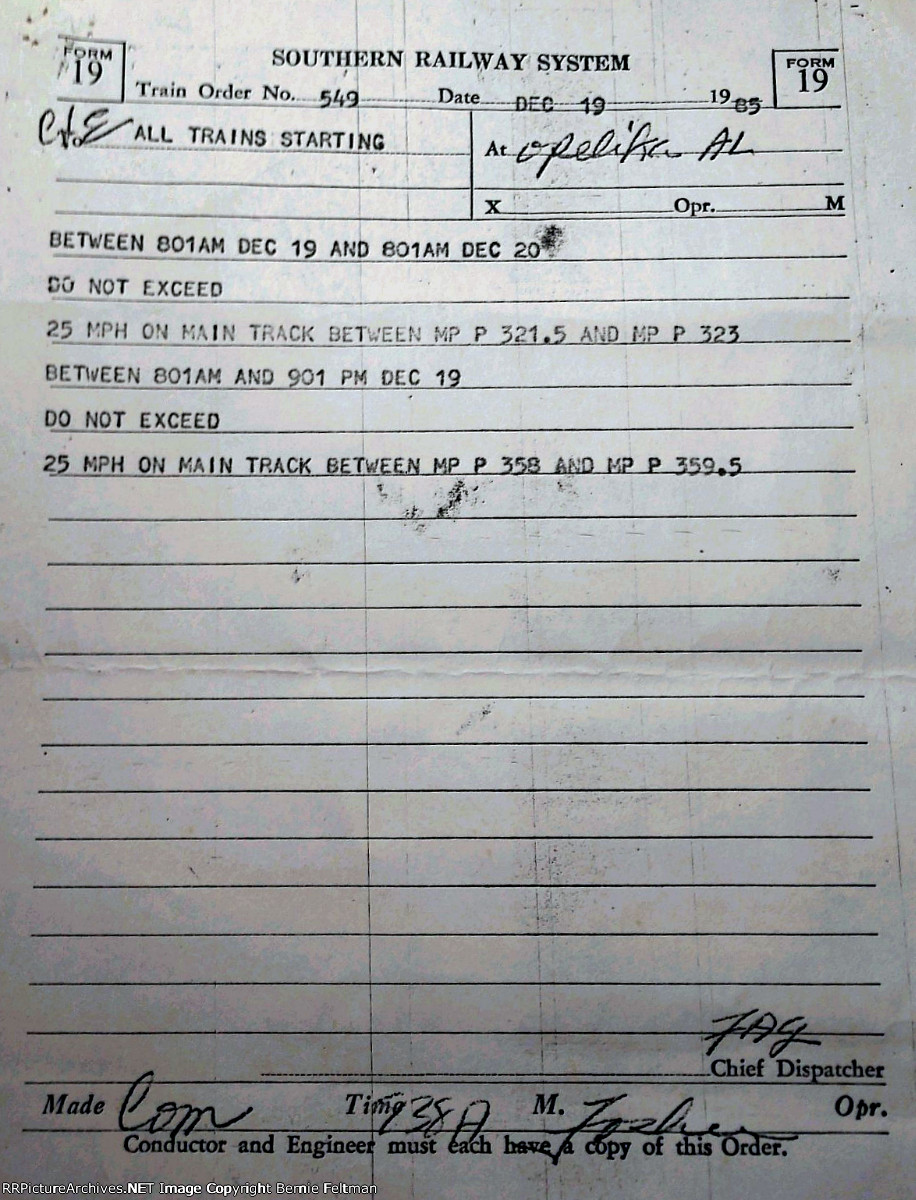 FORM 19 SOUTHERN RAILWAY SYSTEM FORM 19
Train Order No. 549 Date DEC 19 1985
C&E ALL TRAINS STARTING At Opelika AL
X Opr. M
BETWEEN 801AM DEC 19 AND 801AM DEC 20
DO NOT EXCEED
25 MPH ON MAIN TRACK BETWEEN MP P 321.5 AND MP P 323
BETWEEN 801AM AND 901 PM DEC 19
DO NOT EXCEED
25 MPH ON MAIN TRACK BETWEEN MP P 358 AND MP P 359.5
Chief Dispatcher
Made Com Time 738 A M. Opr.
Conductor and Engineer must each have a copy of this Order.
RRPictureArchives.NET Image Copyright Bernie Feltman